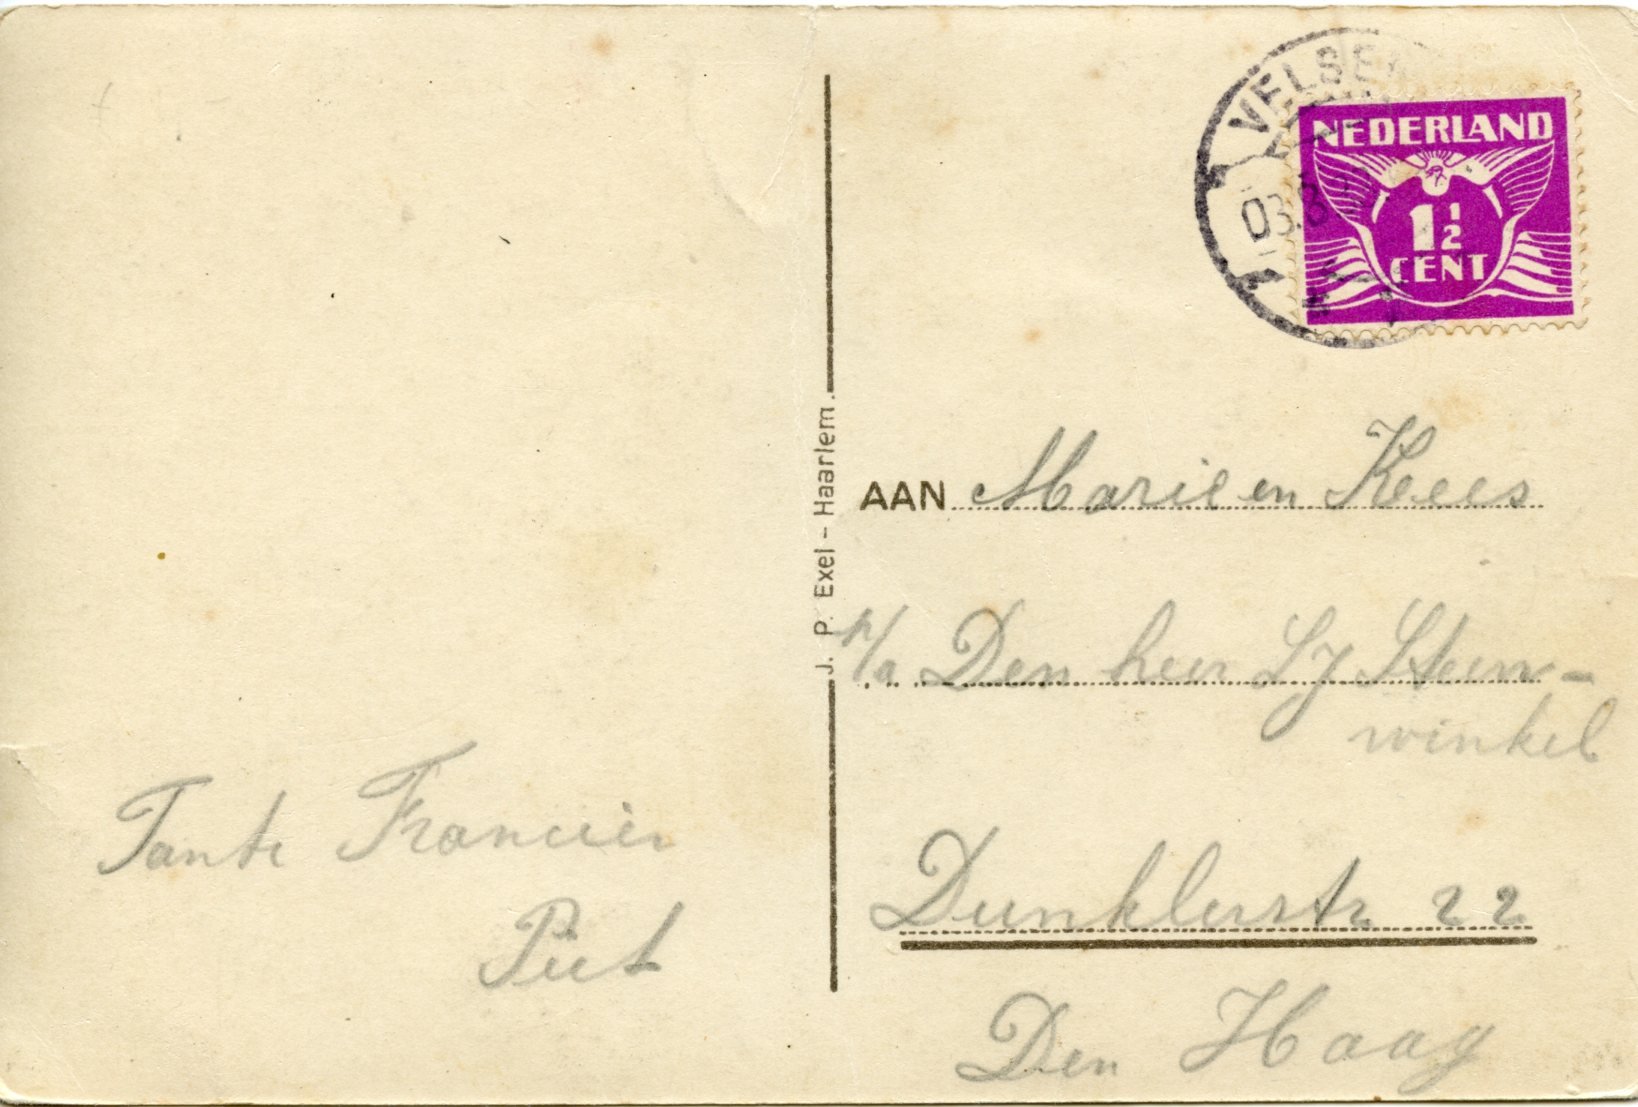 VELSEN
03.8
NEDERLAND
1 1/2
CENT
J. P. Exel - Haarlem.
AAN Marie en Kees
p/a Den heer LJ Steen-
winkel
Dunklerstr 22
Den Haag
Tante Francien
Piet